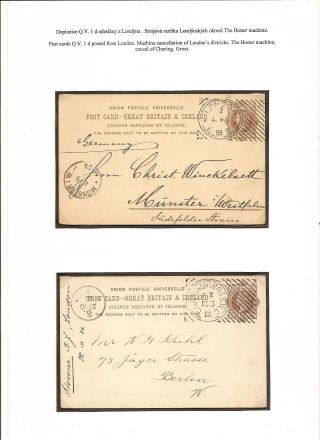 Dopisnice Q.V. 1 d odeslány z Londýna . Strojová razítka Londýnských okresů The Hoster machine.
Post cards Q.V. 1 d posted from London. Machine cancellation of London's districts. The Hoster machine,
cancel of Charing. Gross.
UNION POSTALE UNIVERSELLE
POST CARD-GREAT BRITAIN & IRELAND
(GRANDE BRETAGNE ET IRLANDE)
THE ADDRESS ONLY TO BE WRITTEN ON THIS SIDE
Germany
Herrn Christ Winckelsett
Münster i/Westfalen
Südfelder Strasse
UNION POSTALE UNIVERSELLE
POST CARD-GREAT BRITAIN & IRELAND
(GRANDE BRETAGNE ET IRLANDE)
THE ADDRESS ONLY TO BE WRITTEN ON THIS SIDE
Mr W H Kühl
73 Jäger Strasse
Berlin
W